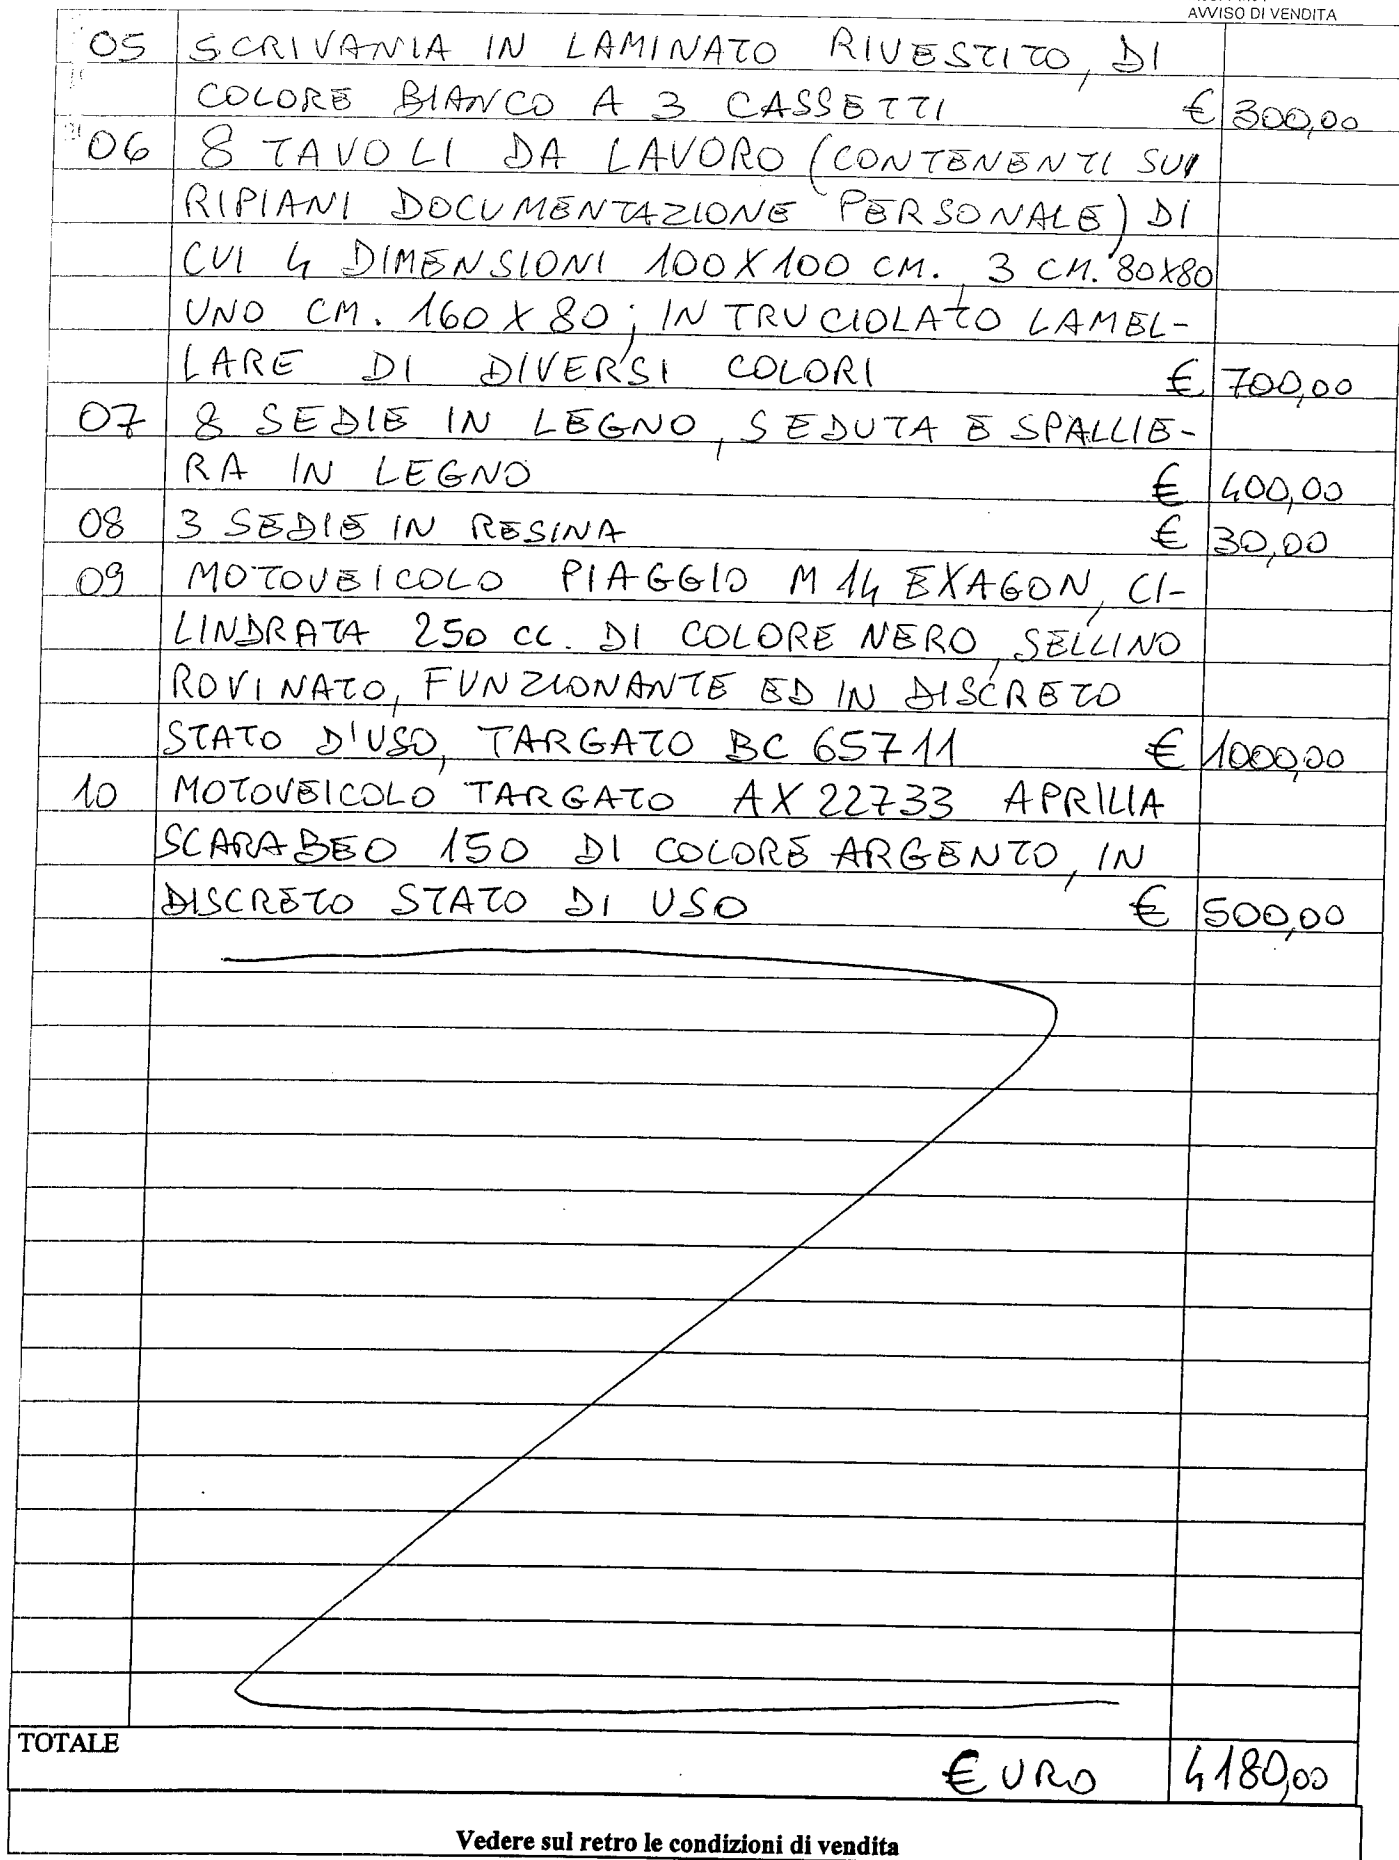 AVVISO DI VENDITA
05 SCRIVANIA IN LAMINATO RIVESTITO, DI
COLORE BIANCO A 3 CASSETTI € 300,00
06 8 TAVOLI DA LAVORO (CONTENENTI SUI
RIPIANI DOCUMENTAZIONE PERSONALE) DI
CUI 4 DIMENSIONI 100X100 CM., 3 CM. 80X80
UNO CM. 160 X 80; IN TRUCIOLATO LAMEL-
LARE DI DIVERSI COLORI € 700,00
07 8 SEDIE IN LEGNO, SEDUTA E SPALLIE-
RA IN LEGNO € 400,00
08 3 SEDIE IN RESINA € 30,00
09 MOTOVEICOLO PIAGGIO M14 EXAGON, CI-
LINDRATA 250 CC. DI COLORE NERO, SELLINO
ROVINATO, FUNZIONANTE ED IN DISCRETO
STATO D'USO, TARGATO BC 65711 € 1000,00
10 MOTOVEICOLO TARGATO AX 22733 APRILIA
SCARABEO 150 DI COLORE ARGENTO, IN
DISCRETO STATO DI USO € 500,00
TOTALE €URO 4180,00
Vedere sul retro le condizioni di vendita